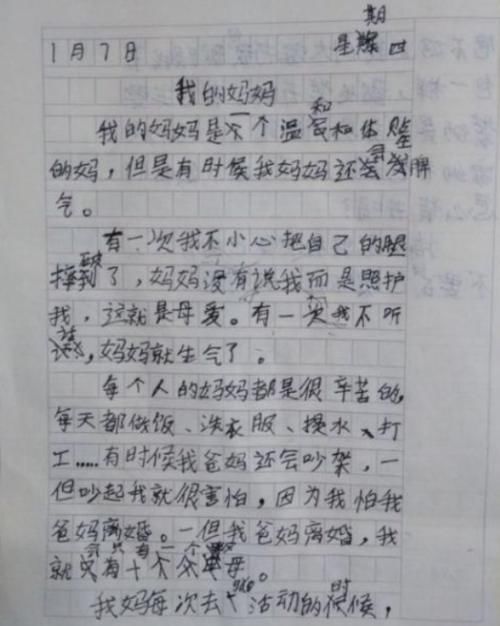 1月7日 星期四
我的妈妈
我的妈妈是一个温和和体贴
的妈，但是有时候我妈妈还会发脾
气。
有一次我不小心把自己的腿
摔破了，妈妈没有说我而是照护
我，这就是母爱。有一次我不听
话，妈妈就生气了。
每个人的妈妈都是很辛苦的，
每天都做饭、洗衣服、提水、打
工……有时候我爸妈还会吵架，一
但吵起我就很害怕，因为我怕我
爸妈离婚。一但我爸妈离婚，我
就会只有一个
我妈每次去 活动的时候，